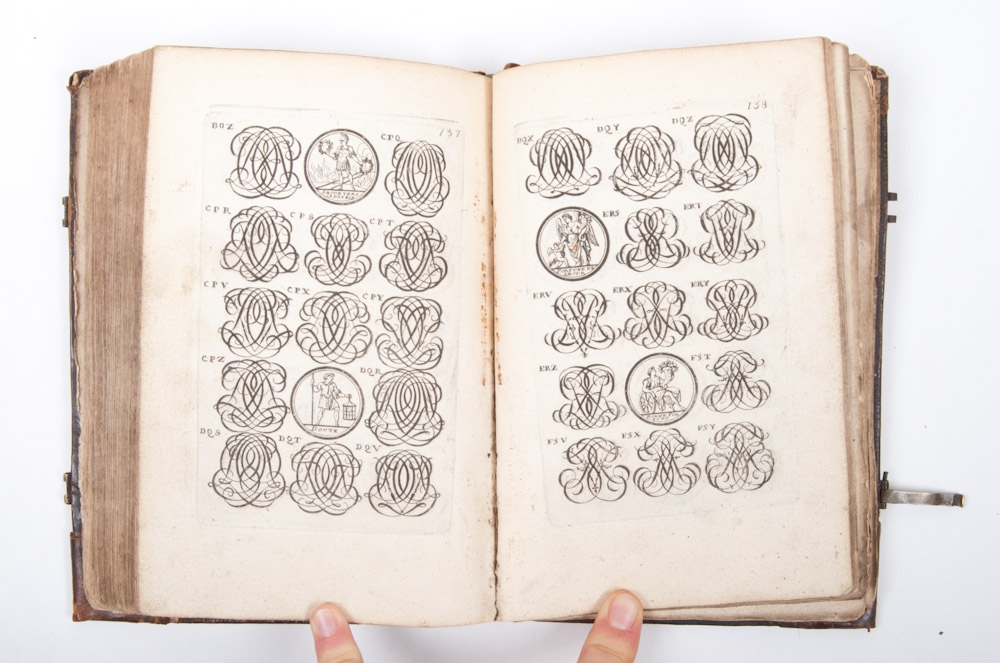 137
BQZ CPQ
CPR CPS CPT
CPV CPX CPY
CPZ DQR
DOUTE
DQS DQT DQV
138
DQX DQY DQZ
ERS ERT
ERV ERX ERY
ERZ FST
FSV FSX FSY